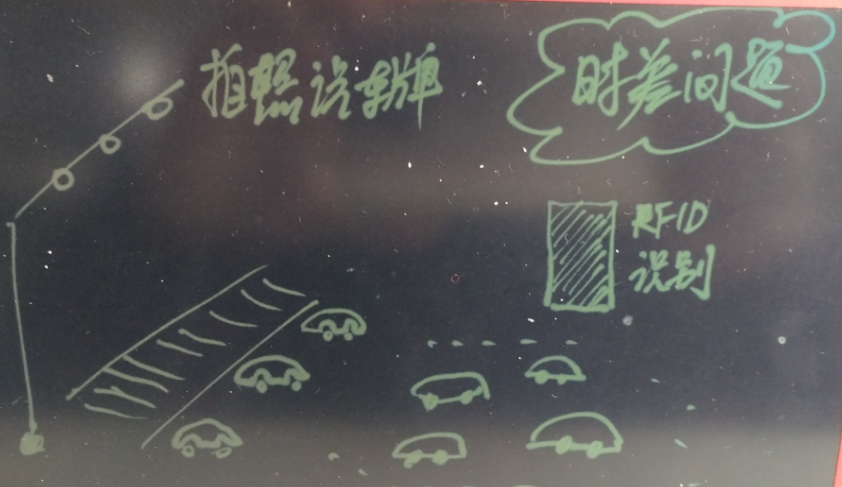 拍照识车牌
时差问题
RFID
识别